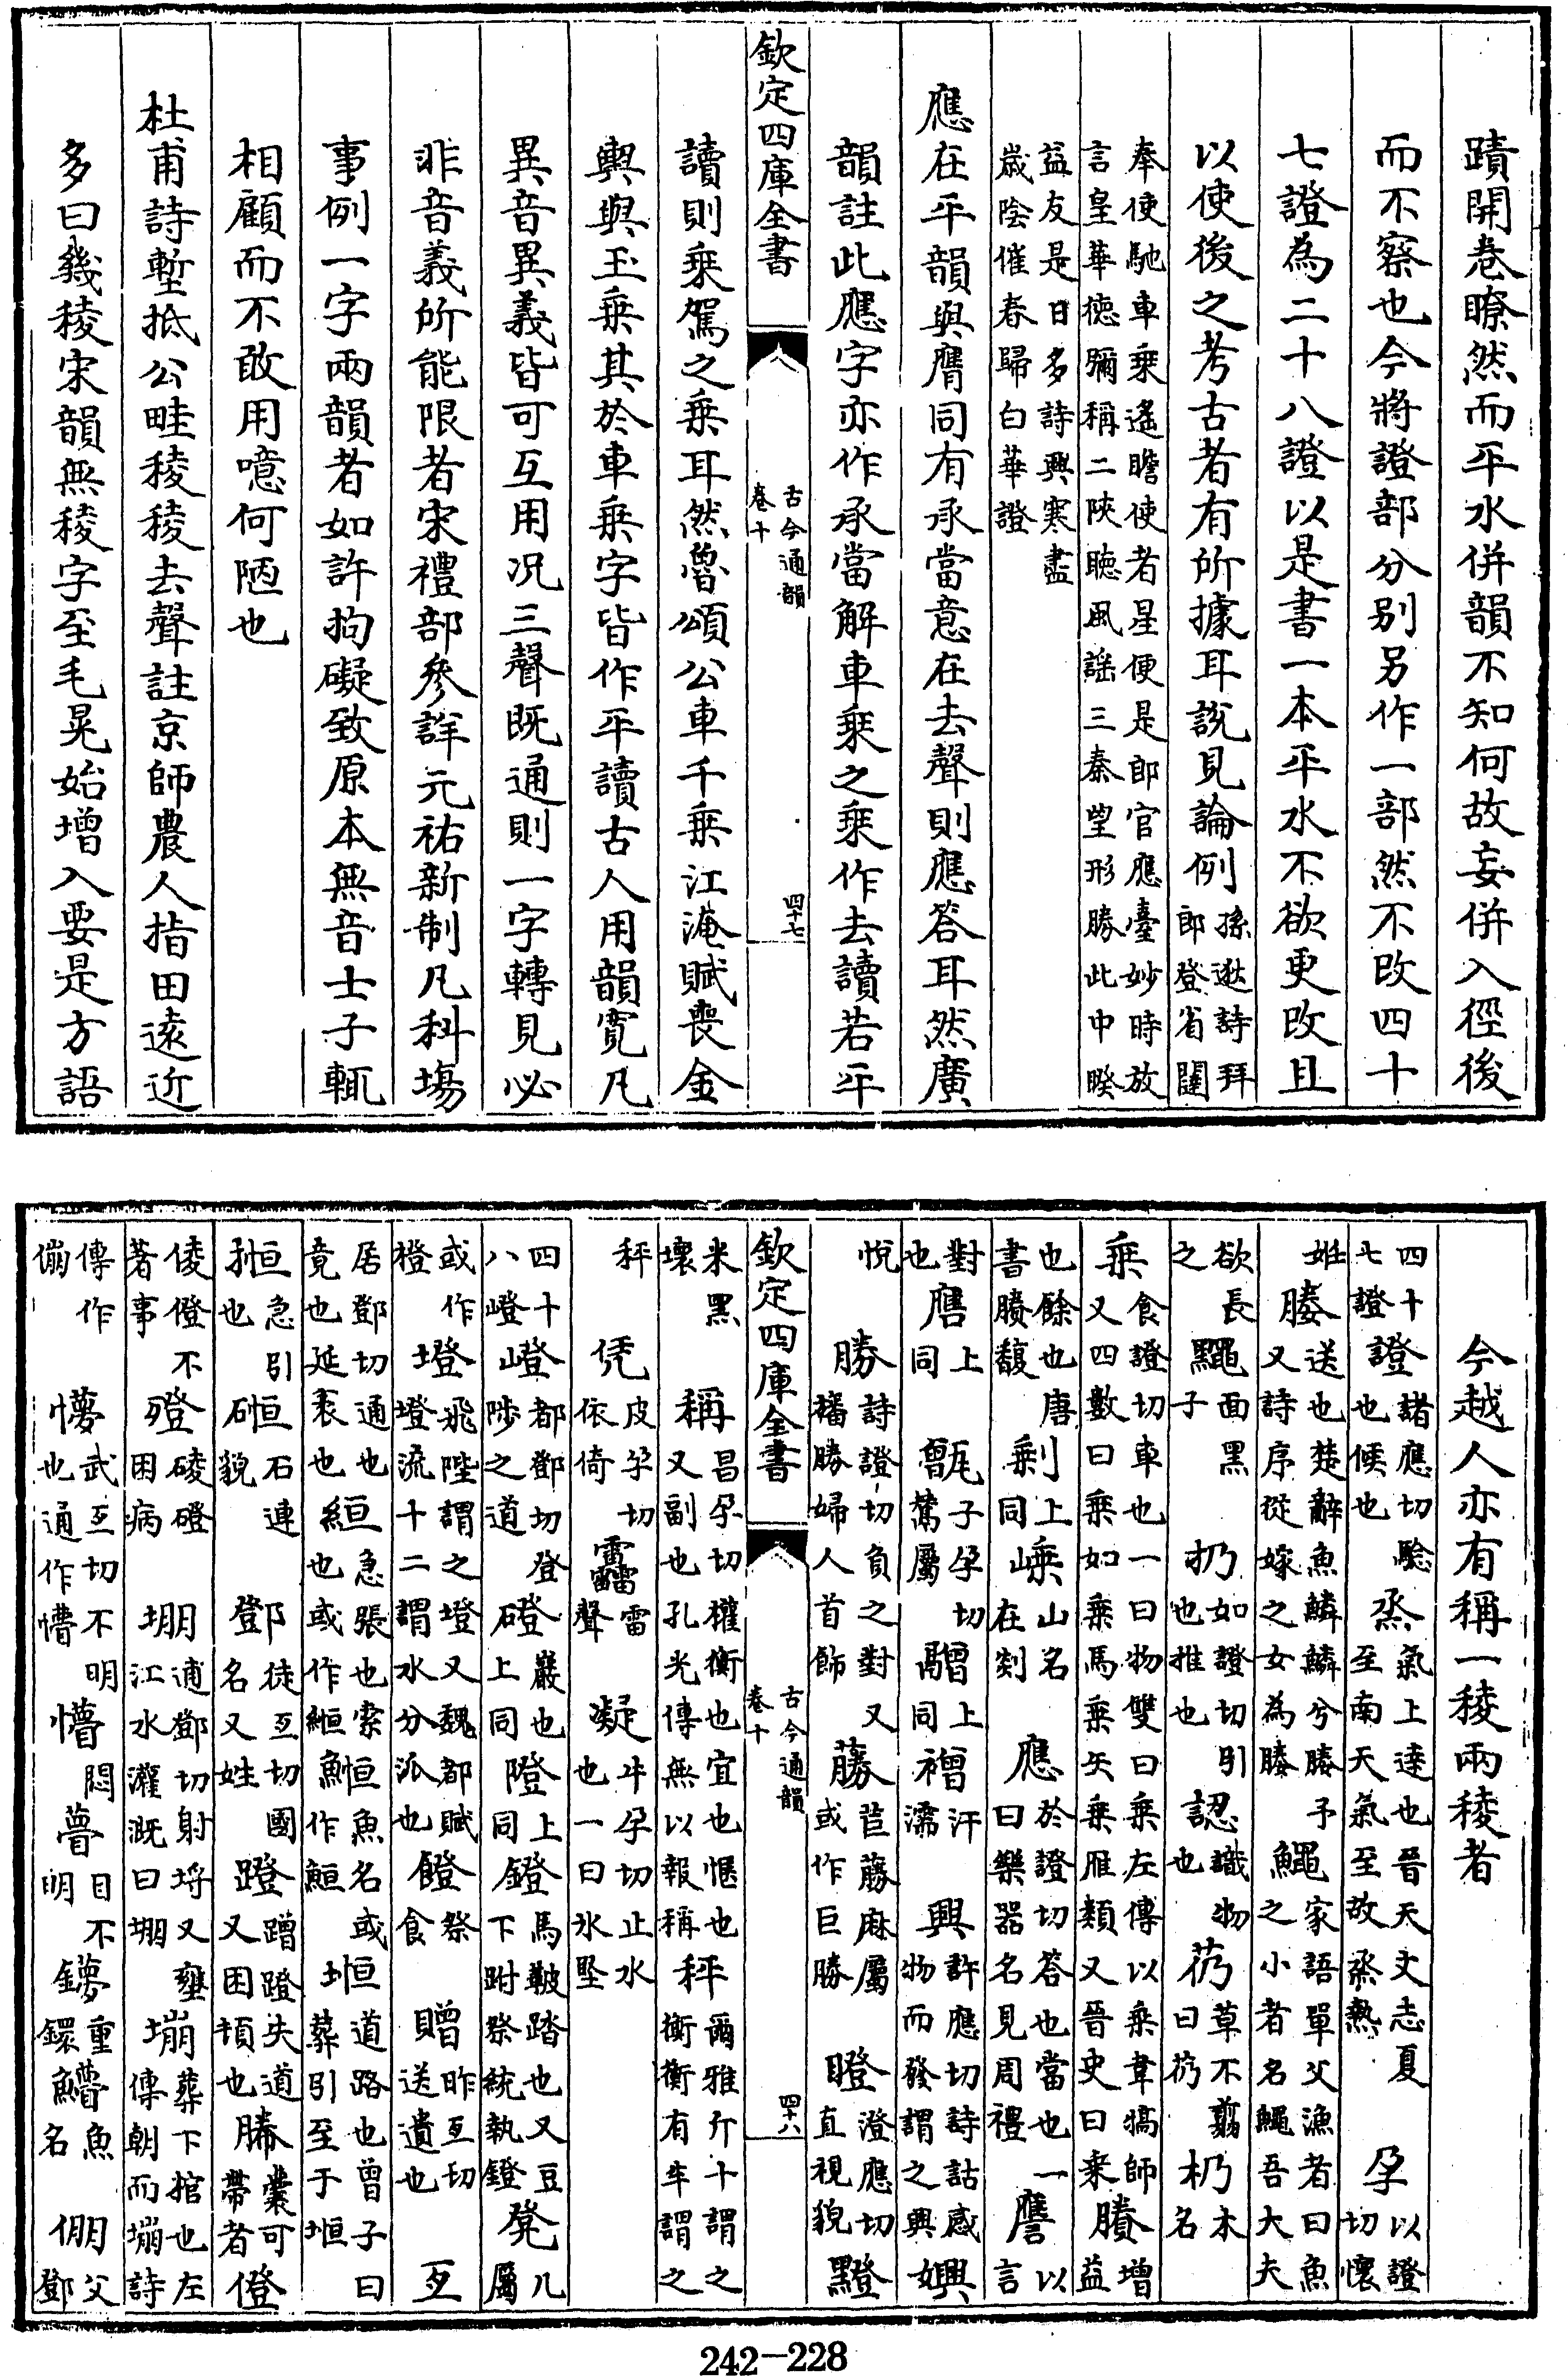 蹟開卷瞭然而平水併韻不知何故妄併入徑後
而不察也今將證部分别另作一部然不改四十
七證為二十八證以是書一本平水不欲更改且
以使後之考古者有所據耳說見論例孫逖詩拜郎登省闥
奉使馳車乘遙瞻使者星便是郎官應臺妙時放
言皇華德彌稱二陝聽風謡三秦望形勝此中睽
益友是日多詩興寒盡
歲陰催春歸白華證
應在平韻與膺同有承當意在去聲則應答耳然廣
韻註此應字亦作承當解車乘之乘作去讀若平
欽定四庫全書 古今通韻 卷十 四十七
讀則乘駕之乘耳然魯頌公車千乘江淹賦喪金
輿與玉乘其於車乘字皆作平讀古人用韻寛凡
異音異義皆可互用况三聲既通則一字轉見必
非音義所能限者宋禮部參詳元祐新制凡科場
事例一字兩韻者如許拘礙致原本無音士子輒
相顧而不敢用噫何陋也
杜甫詩塹抵公畦稜稜去聲註京師農人指田遠近
多曰幾稜宋韻無稜字至毛晃始增入要是方語
今越人亦有稱一稜兩稜者
四十七證 證諸應切驗也候也 烝氣上達也晉天文志夏至南天氣至故烝熱 孕以證切懷
姙 媵送也楚辭魚鱗鱗兮媵予又詩序從嫁之女為媵 鱦家語單父漁者曰魚之小者名鱦吾大夫
欲長之 面黑子 扔如證切引也推也 認識物也 芿草不翦曰芿 杒木名
乘食證切車也一曰物雙曰乘左傳以乘韋犒師又四數曰乘如乘馬乘矢乘雁類又晉史曰乘 賸增益
也餘也唐書賸馥 剩上同 嵊山名在剡 應於證切答也當也一曰樂器名見周禮 譍以言
對也 上同 甑子孕切鬵屬 上同 汗襦 興許應切詩詁感物而發謂之興 嬹
悅 勝詩證切負之對又襎勝婦人首飾 藤苣藤麻屬或作巨勝 瞪澄應切直視貌
米黑壞 稱昌孕切權衡也宜也愜也又副也孔光傳無以報稱 秤爾雅斤十謂之衡衡有半謂之
秤 凭皮孕切依倚 雷聲 凝牛孕切止水也一曰氷堅
欽定四庫全書 古今通韻 卷十 四十八
四十八嶝 嶝都鄧切登陟之道 磴巖也上同 隥上同 鐙馬鞁踏也又豆下跗祭統執鐙 凳几屬
或作橙 墱飛陛謂之墱又魏都賦墱流十二謂水分派也 祭食 贈昨亙切送遺也 亙
居鄧切通也竟也延袤也 急張也索也或作絙 魚名或作 堩道路也曾子曰葬引至于堩
急引也 石連貌 鄧徒亙切國名又姓 蹬蹭蹬失道又困頓也 幐囊可帶者 僜
倰僜不著事 磴困病 堋逋鄧切射埒又壅江水灌溉曰堋 塴葬下棺也左傳朝而塴詩
傳作 懜武亙切不明也通作懵 懵悶 瞢目不明 重鐶 魚名 倗父鄧
242-228